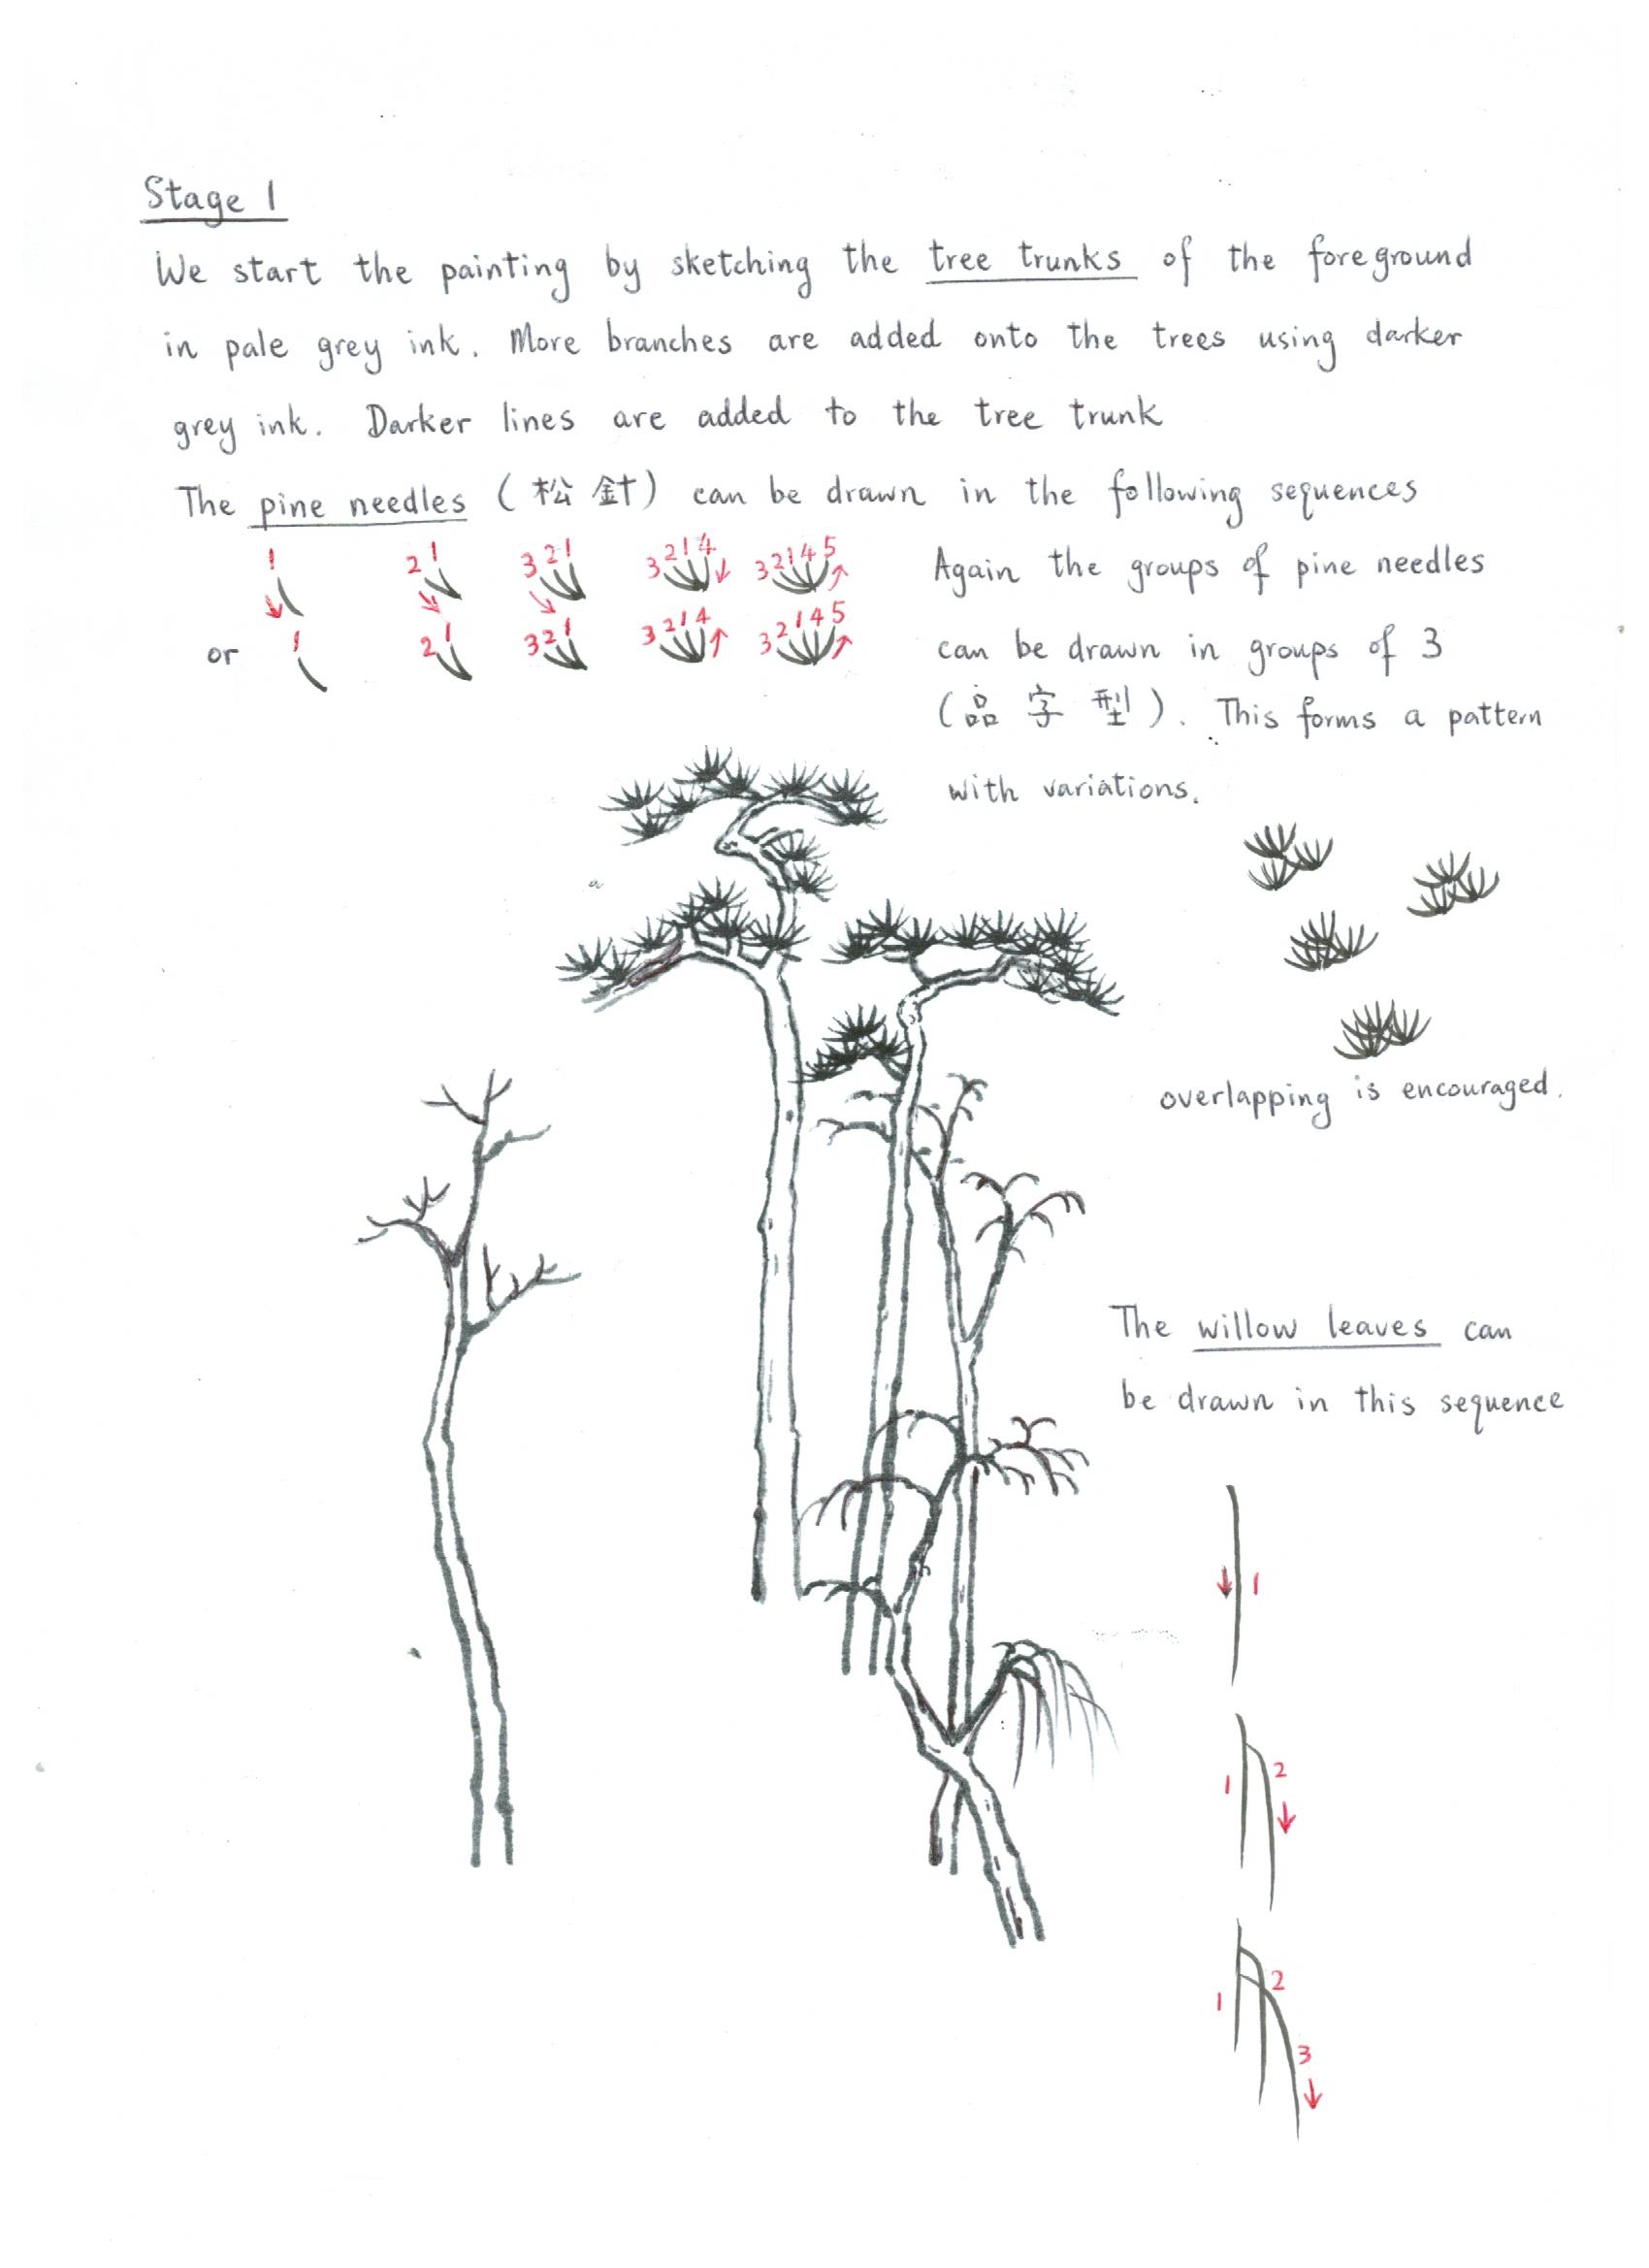 Stage 1
We start the painting by sketching the tree trunks of the foreground
in pale grey ink. More branches are added onto the trees using darker
grey ink. Darker lines are added to the tree trunk
The pine needles (松針) can be drawn in the following sequences
1 2 1 3 2 1 3 2 1 4 3 2 1 4 5
or 1 2 1 3 2 1 3 2 1 4 3 2 1 4 5
Again the groups of pine needles
can be drawn in groups of 3
(品字型). This forms a pattern
with variations.
overlapping is encouraged.
The willow leaves can
be drawn in this sequence
1
1 2
1 2
3